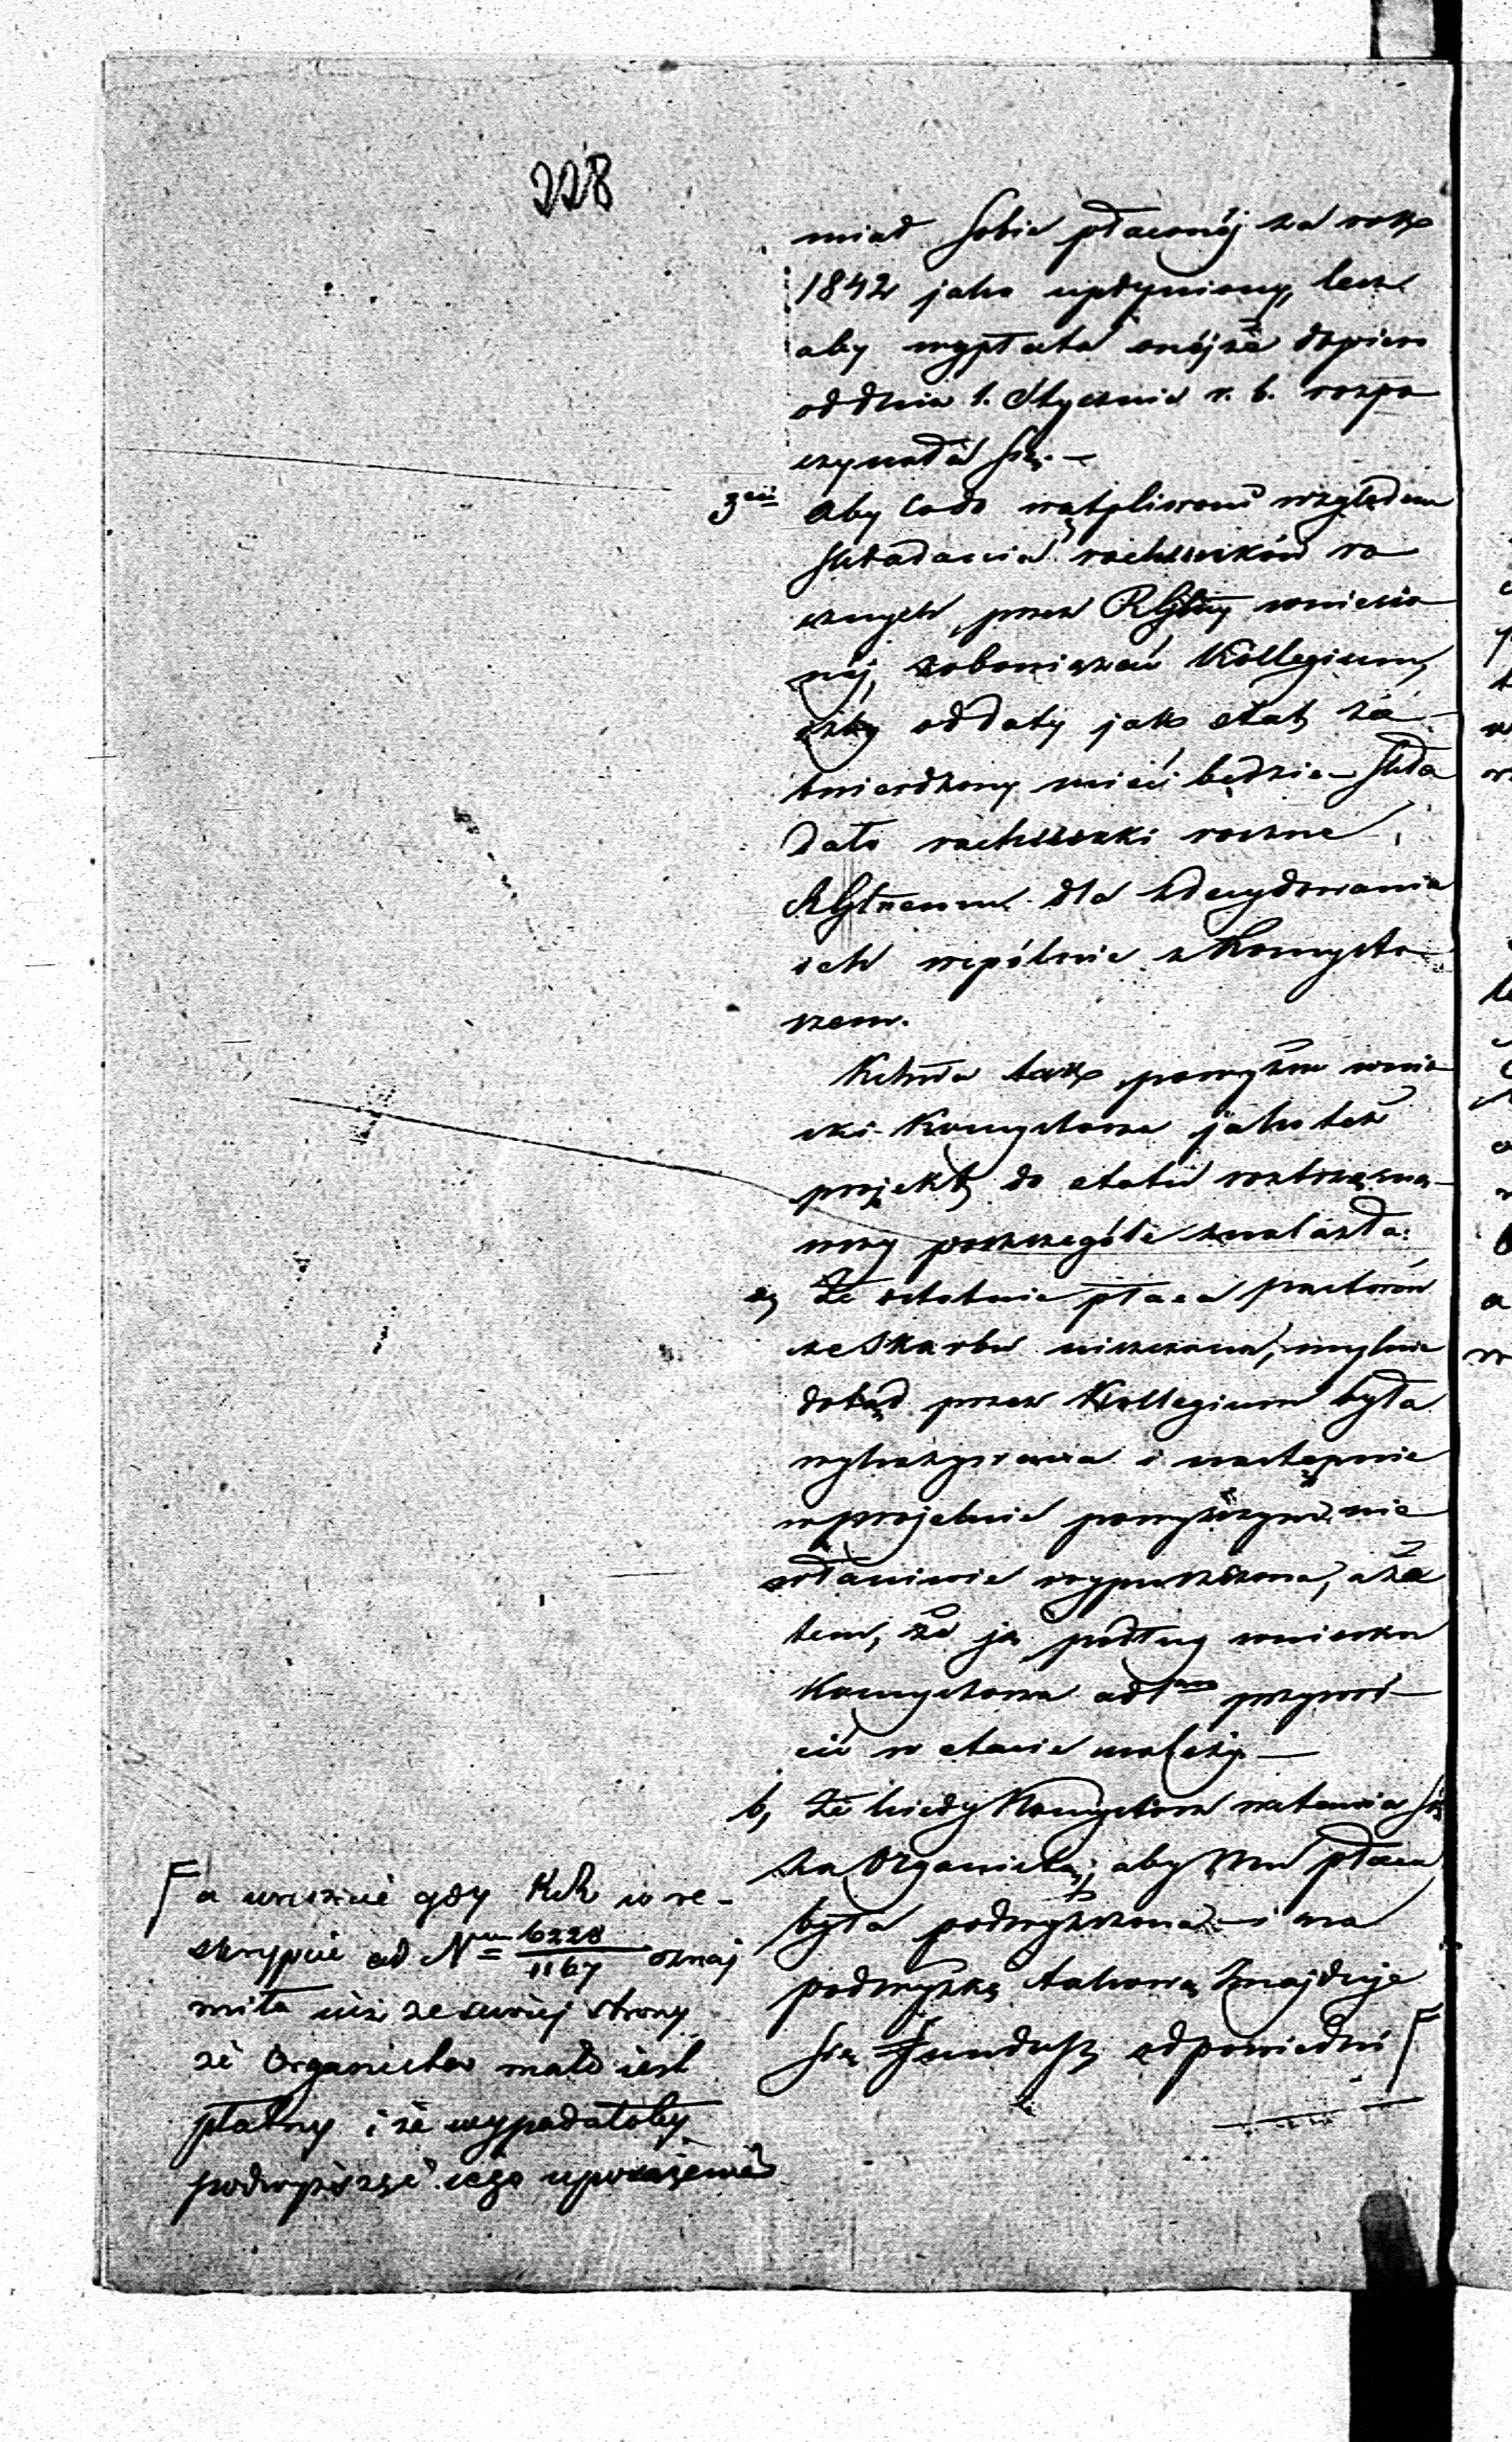 228
miał sobie płaconéj za rok
1842 jako upłyniony, lecz
aby wypłata onéjże dopiero
od dnia 1. Stycznia r. b. rozpo
czynała się. —
3cie Aby co do wątpliwości względem
składania rachunków ro
cznych, przez RGłny wniesio
néj, zobowiązać Kollegium,
ażby oddaty jak etat za
twierdzony mieć będzie — skła
dało rachunki roczne
RGłnemu dla zdecydowania
ich wspólnie z Konsysto
rzem.
tak powyższe wnio
ski Konsystorza jako też
projekt do etatu roztrząsną
wszy poszczególe znalazła:
a, Że ostatnie płaca pastorów
ze Skarbu uiszczana, mylnie
dotąd przez Kollegium była
wykazywana i następnie
w projekcie powyższym nie
właściwie wypuszczona, a za
tem, że ją podług wniosku
Konsystorza ad 1mo przywró
cić w etacie należy. —
b, Że kiedy Konsystorz wstawia się
za Organistą, aby Mu płaca
była podwyższona — i na
podwyżkę takową znajduje
się Fundusz odpowiedni F
F a wreszcie gdy KR w re-
skrypcie ad Nrum 6228/1167 oznaj
miła iż ze swojej strony
że Organista mało jest
płatny i że wypadałoby
podwyższyć jego uposażenie